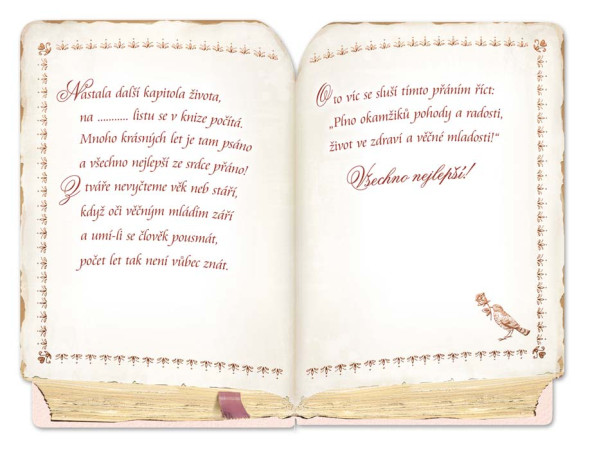 Nastala další kapitola života,
na ........... listu se v knize počítá.
Mnoho krásných let je tam psáno
a všechno nejlepší ze srdce přáno!
Z tváře nevyčteme věk neb stáří,
když oči věčným mládím září
a umí-li se člověk pousmát,
počet let tak není vůbec znát.
O to víc se sluší tímto přáním říct:
„Plno okamžiků pohody a radosti,
život ve zdraví a věčné mladosti!“
Všechno nejlepší!